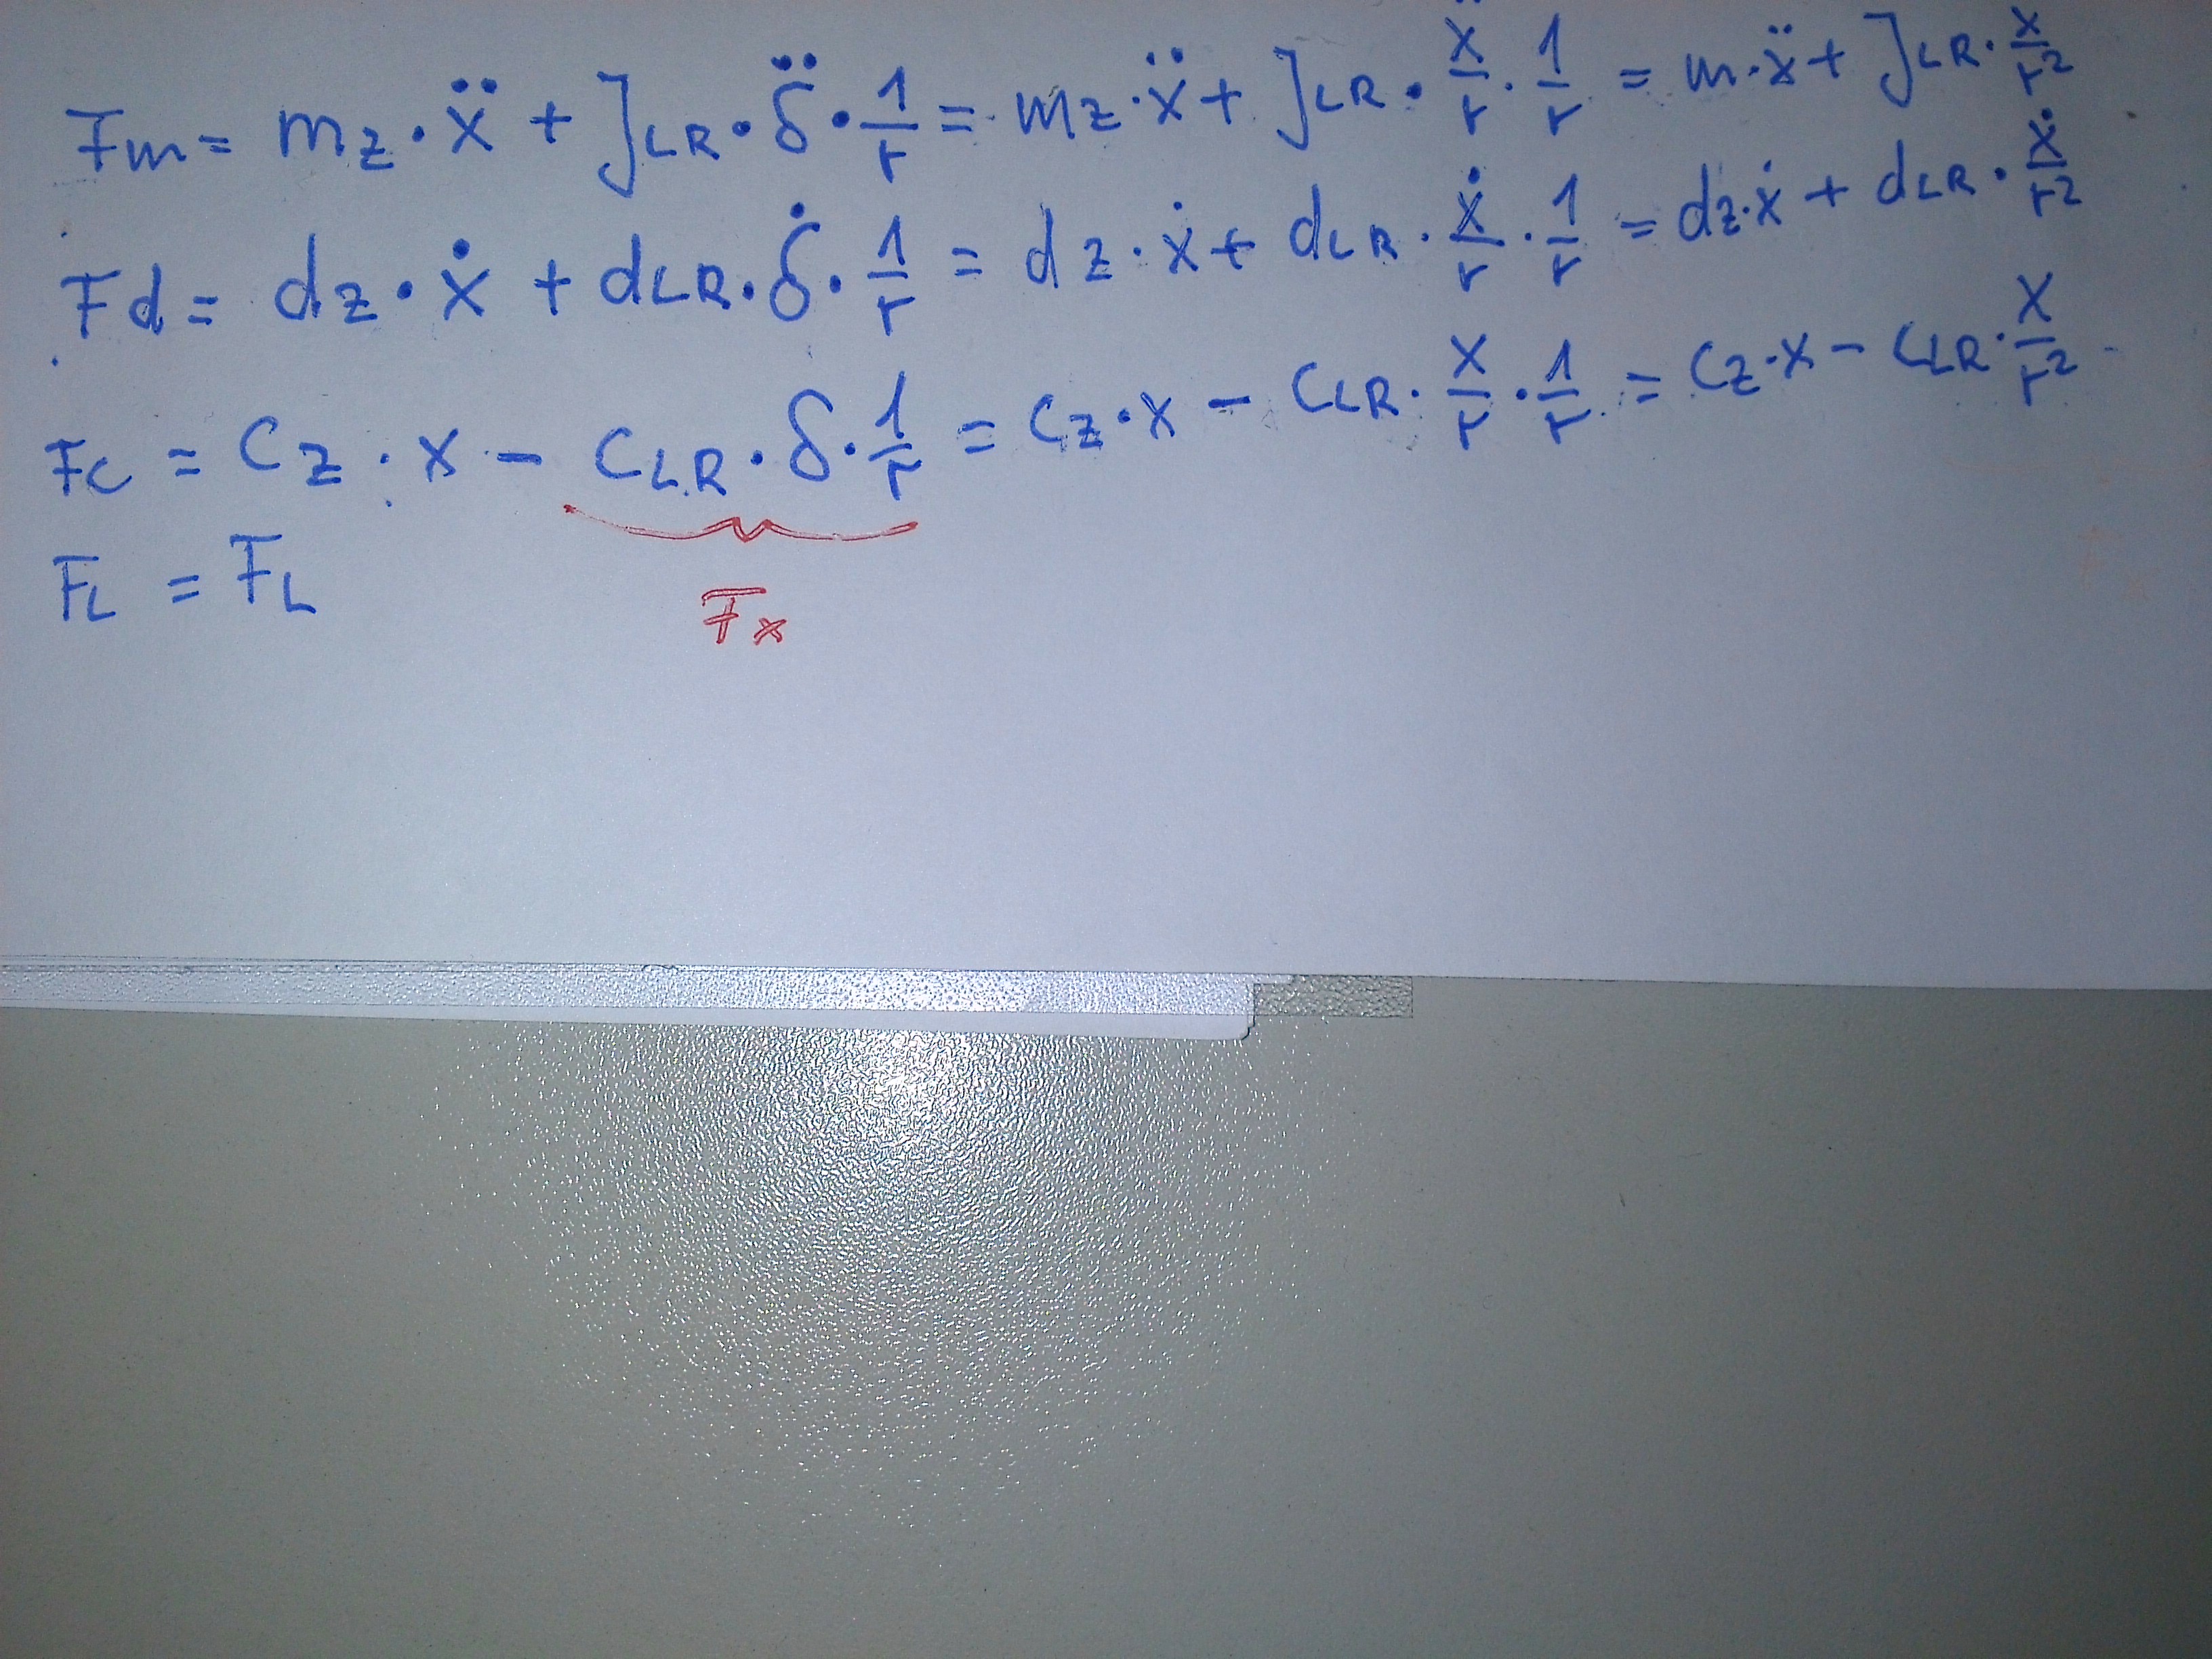 Fm = mz · ẍ + JLR · δ̈ · 1/r = mz · ẍ + JLR · ẍ/r · 1/r = m · ẍ + JLR · ẍ/r²
Fd = dz · ẋ + dLR · δ̇ · 1/r = dz · ẋ + dLR · ẋ/r · 1/r = dz · ẋ + dLR · ẋ/r²
Fc = Cz · x - CLR · δ · 1/r = Cz · x - CLR · x/r · 1/r = Cz · x - CLR · x/r²
FL = FL
Fx